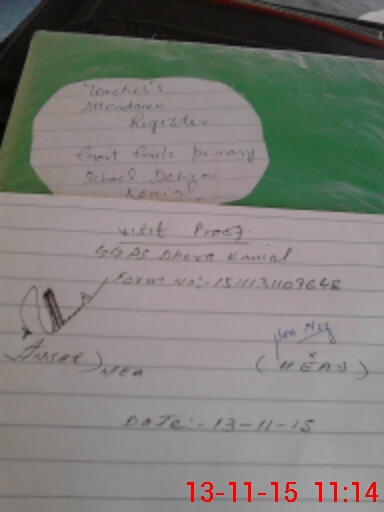 Teacher's
Attendance
Register
Govt Girls primary
School Dehra
Kamial
visit Proof
GGPS Dhera Kamial
Form No:-
Ansar) MEA
(HEAD)
DATE:- 13-11-15
13-11-15 11:14